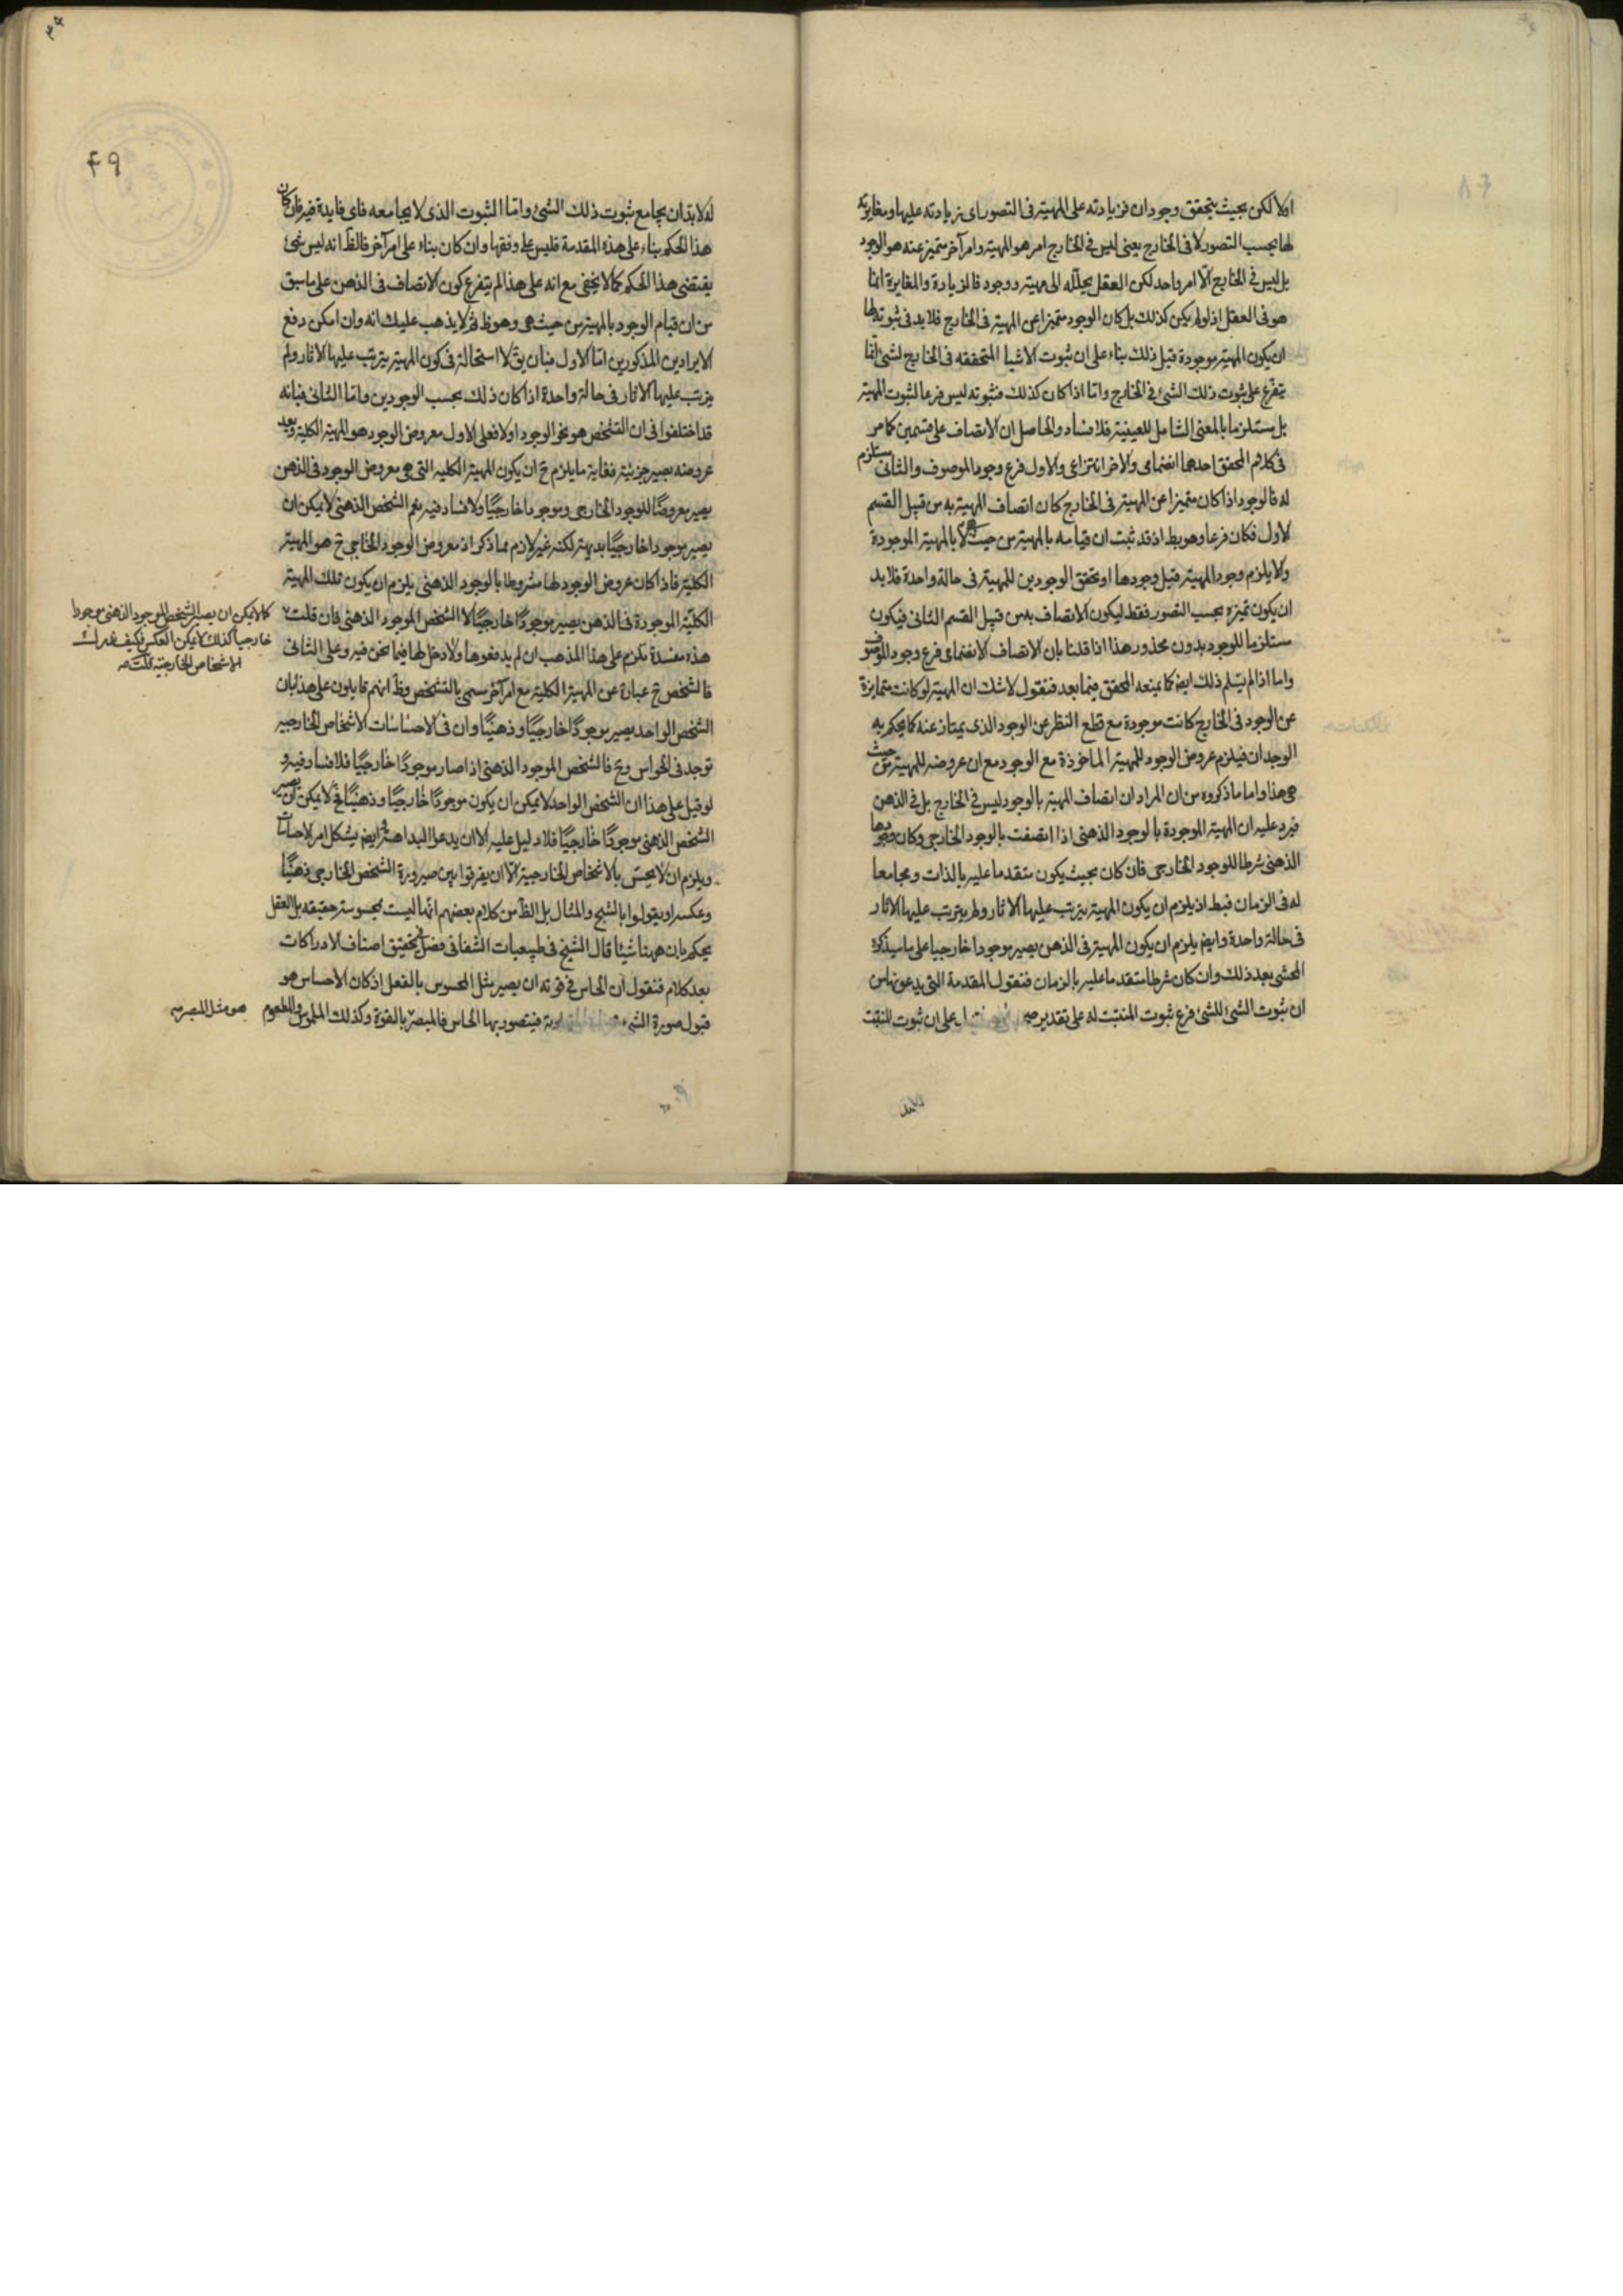 اولا لكن بحيث يتحقق وجودان فزيادته على المهية فى التصور اى زيادته عليها ومغايرته
لها بحسب التصور لا فى الخارج يعنى ليس فى الخارج امر هو المهية وامر آخر متميز عنه هو الوجود
بل ليس فى الخارج الا امر واحد لكن العقل يحلله الى مهية ووجود فالزيادة والمغايرة انما
هو فى العقل اذ لو لم يكن كذلك بل كان الوجود متميزا عن المهية فى الخارج فلا بد فى ثبوته لها
ان يكون المهية موجودة قبل ذلك بناء على ان ثبوت الاشيا المتحققه فى الخارج لشئ انما
يتفرع على ثبوت ذلك الشئ فى الخارج واما اذا كان كذلك فثبوته ليس فرعا لثبوت المهية
بل مستلزما بالمعنى الشامل للعينية فلا فساد والحاصل ان الاتصاف على قسمين كما مر
فى كلام المحقق احدهما انضمامى والاخر انتزاعى والاول فرع وجود الموصوف والثانى مستلزم
له فالوجود اذا كان متميزا عن المهية فى الخارج كان اتصاف المهية به من قبيل القسم
الاول فكان فرعا وهو بط اذ قد ثبت ان قيامه بالمهية من حيث هى لا بالمهية الموجودة
ولا يلزم وجود المهية قبل وجودها او تحقق الوجودين للمهية فى حالة واحدة فلا بد
ان يكون تميزه بحسب التصور فقط ليكون الاتصاف به من قبيل القسم الثانى فيكون
مستلزما للوجود بدون محذور هذا اذا قلنا بان الاتصاف الانضمامى فرع وجود الموصوف
واما اذا لم يتسلم ذلك ايض كما يمنعه المحقق فيما بعد فنقول لا شك ان المهية لو كانت متمايزة
عن الوجود فى الخارج كانت موجودة مع قطع النظر عن الوجود الذى يمتاز عنه كما يحكم به
الوجدان فيلزم عروض الوجود للمهية الماخوذة مع الوجود مع ان عروضه للمهية من حيث
هى هذا واما ما ذكروه من ان المراد ان اتصاف المهية بالوجود ليس فى الخارج بل فى الذهن
فيرد عليه ان المهية الموجودة بالوجود الذهنى اذا اتصفت بالوجود الخارجى وكان وجودها
الذهنى شرطا للوجود الخارجى فان كان بحيث يكون متقدما عليه بالذات ومجامعا
له فى الزمان فبط اذ يلزم ان يكون المهية يترتب عليها الاثار ولم يترتب عليها الاثار
فى حالة واحدة وايض يلزم ان يكون المهية فى الذهن يصير موجودا خارجيا على ما سيذكره
المحشى بعد ذلك وان كان شرطا متقدما عليه بالزمان فنقول المقدمة التى يدعونها من
ان ثبوت الشئ للشئ فرع ثبوت المثبت له على تقدير على ان ثبوت المثبت
٤٩
له لا بد ان يجامع ثبوت ذلك الشئ واما الثبوت الذى لا يجامعه فاى فايدة فيه فان كان
هذا الحكم بناء على هذه المقدمة فليس على وفقها وان كان بناء على امر آخر فالظ انه ليس شئ
يقتضى هذا الحكم كما لا يخفى مع انه على هذا لم يتفرع كون الاتصاف فى الذهن على ما سبق
من ان قيام الوجود بالمهية من حيث هى وهو ظ ثم لا يذهب عليك انه وان امكن دفع
الايرادين المذكورين اما الاول فبان يق لا استحالة فى كون المهية يترتب عليها الاثار ولم
يترتب عليها الاثار فى حالة واحدة اذا كان ذلك بحسب الوجودين واما الثانى فبانه
قد اختلفوا فى ان التشخص هو نحو الوجود او لا فعلى الاول معروض الوجود هو المهية الكلية وبعد
عروضه يصير جزئية فغاية ما يلزم ح ان يكون المهية الكلية التى هى معروض الوجود فى الذهن
يصير معروضا للوجود الخارجى وموجودا خارجيا ولا فساد فيه نعم الشخص الذهنى لا يمكن ان
يصير موجودا خارجيا بديهة لكنه غير لازم مما ذكر اذ معروض الوجود الخارجى ح هو المهية
الكلية فاذا كان عروض الوجود لها مشروطا بالوجود الذهنى يلزم ان يكون تلك المهية
الكلية الموجودة فى الذهن يصير موجودا خارجيا لا الشخص الموجود الذهنى فان قلت
هذه مفسدة تلزم على هذا المذهب ان لم يدفعوها ولا دخل لها فيما نحن فيه وعلى الثانى
فالشخص ح عبارة عن المهية الكلية مع امر آخر سمى بالتشخص وظ انهم قايلون على هذا بان
الشخص الواحد يصير موجودا خارجيا وذهنيا وان فى الاحساسات الاشخاص الخارجية
توجد فى الحواس وح فالشخص الموجود الذهنى اذا صار موجودا خارجيا فلا فساد فيه و
لو قيل على هذا ان الشخص الواحد لا يمكن ان يكون موجودا خارجيا وذهنيا فح لا يمكن ان يصير
الشخص الذهنى موجودا خارجيا فلا دليل عليه الا ان يدعوا البداهة وايض يشكل امر الاحساسات
ويلزم ان لا يحس بالاشخاص الخارجية الا ان يفرقوا بين صيرورة الشخص الخارجى ذهنيا
وعكسه او يقولوا بالشبح والمثال بل الظ من كلام بعضهم انها ليست محسوسة حقيقه بل العقل
يحكم بان ههنا شيئا قال الشيخ فى طبيعيات الشفا فى فصل فى تحقيق اصناف الادراكات
بعد كلام فنقول ان الحاس فى قوته ان يصير مثل المحسوس بالفعل اذ كان الاحساس هو
قبول صورة الشئ فيتصور بها الحاس فالمبصر بالقوة وكذلك الملموس والمطعوم
كما لا يمكن ان يصير الشخص الموجود الذهنى موجودا
خارجيا كذلك لا يمكن العكس فكيف يدرك
الاشخاص الخارجية قلت
هو مثل المبصر